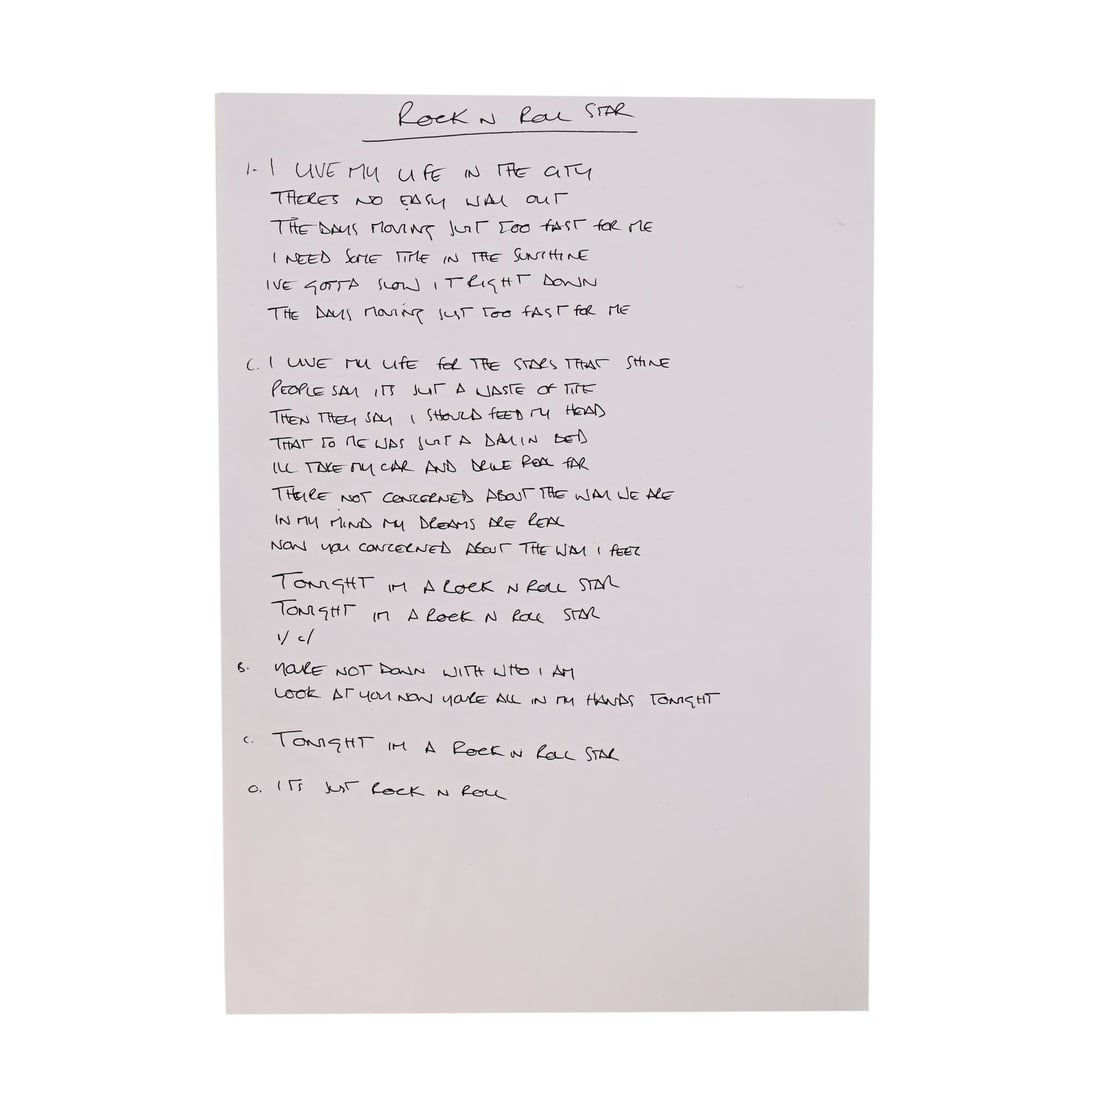 ROCK N ROLL STAR
1. I LIVE MY LIFE IN THE CITY
THERES NO EASY WAY OUT
THE DAYS MOVING JUST TOO FAST FOR ME
I NEED SOME TIME IN THE SUNSHINE
IVE GOTTA SLOW IT RIGHT DOWN
THE DAYS MOVING JUST TOO FAST FOR ME
C. I LIVE MY LIFE FOR THE STARS THAT SHINE
PEOPLE SAY ITS JUST A WASTE OF TIME
THEN THEY SAY I SHOULD FEED MY HEAD
THAT TO ME WAS JUST A DAY IN BED
ILL TAKE MY CAR AND DRIVE REAL FAR
THEYRE NOT CONCERNED ABOUT THE WAY WE ARE
IN MY MIND MY DREAMS ARE REAL
NOW YOU CONCERNED ABOUT THE WAY I FEEL
TONIGHT IM A ROCK N ROLL STAR
TONIGHT IM A ROCK N ROLL STAR
1/ C/
B. YOURE NOT DOWN WITH WHO I AM
LOOK AT YOU NOW YOURE ALL IN MY HANDS TONIGHT
C. TONIGHT IM A ROCK N ROLL STAR
O. ITS JUST ROCK N ROLL